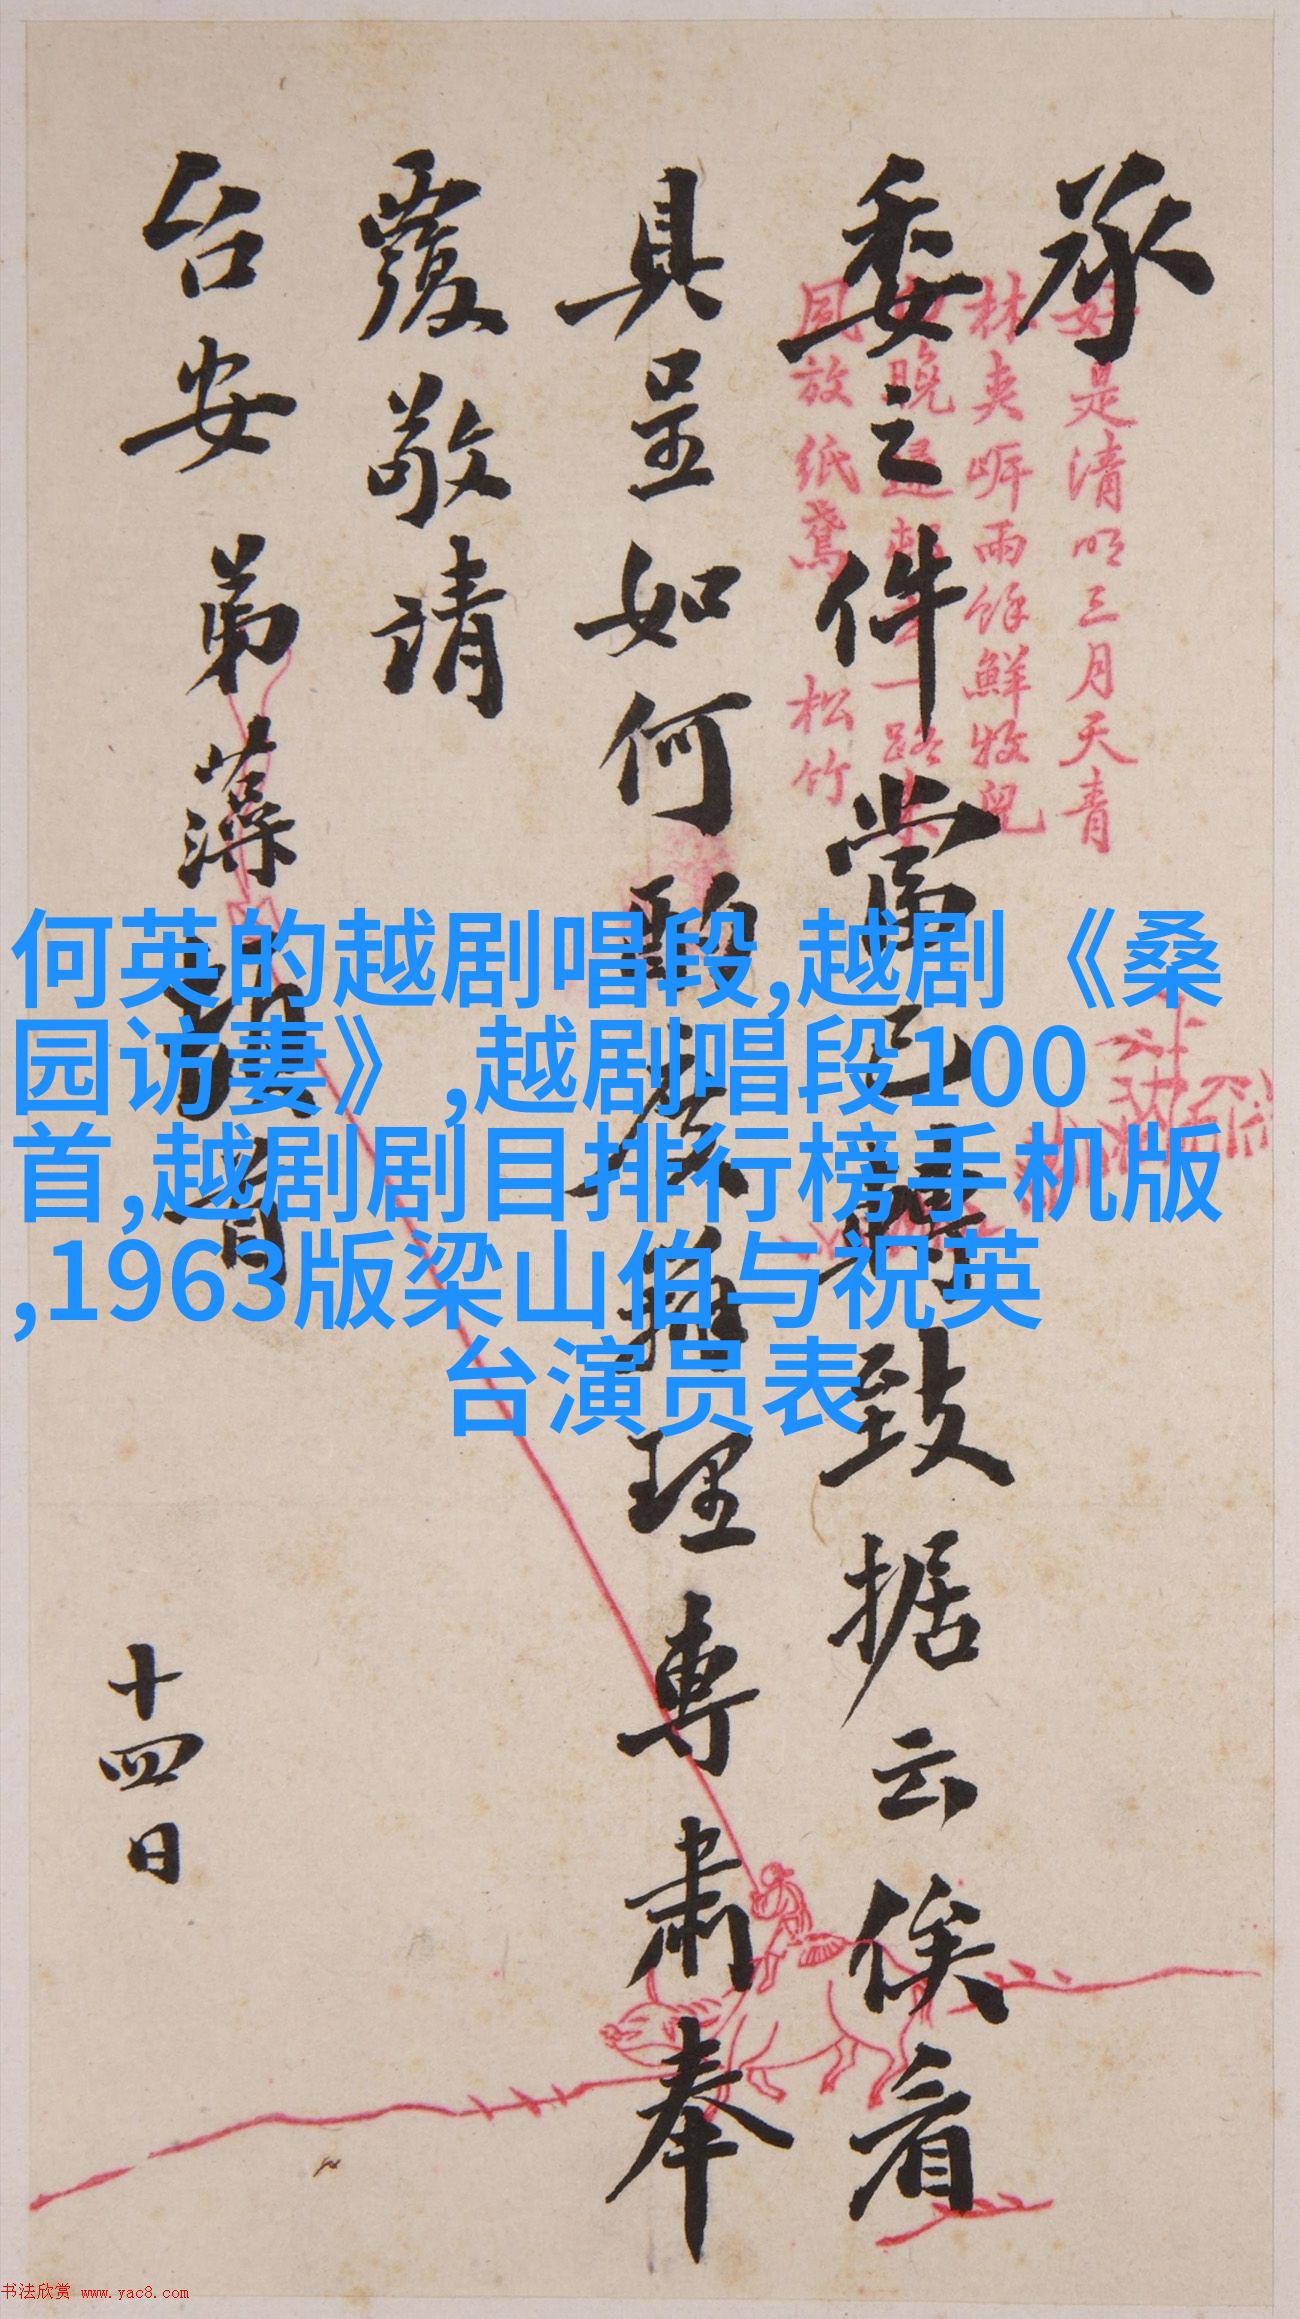 承
委之件當已轉致据云俟看
具呈如何
理專肅奉
覆敬請
台安 弟藻
十四日
好是清明三月天青
林夾岸雨餘鮮牧兒
同放紙鳶 松竹
何英的越剧唱段,越剧《桑
园访妻》,越剧唱段100
首,越剧剧目排行榜手机版
,1963版梁山伯与祝英
台演员表
书法欣赏 www.yac8.com